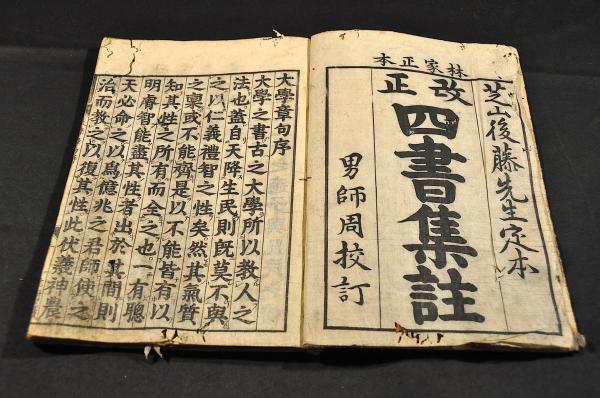 林家正本
芝山後藤先生定本
改正
四書集註
男師周校訂
大學章句序
大學之書古之大學所以教人之
法也蓋自天降生民則既莫不與
之以仁義禮智之性矣然其氣質
之稟或不能齊是以不能皆有以
知其性之所有而全之也一有聰
明睿智能盡其性者出於其間則
天必命之以爲億兆之君師使之
治而教之以復其性此伏羲神農